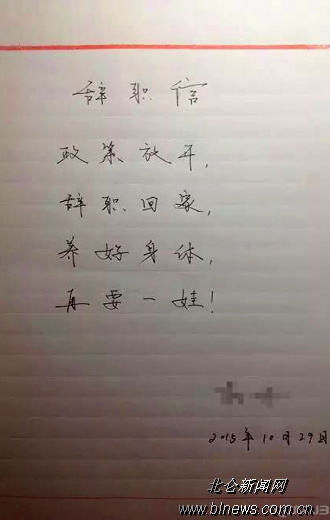 辞职信
政策放开,
辞职回家,
养好身体,
再要一娃!
2015年10月29日
北仑新闻网
www.blnews.com.cn